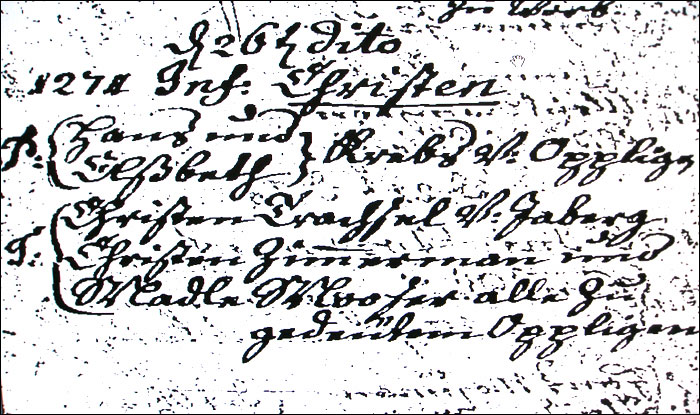 Zu Worb
d 26t dito
1271 Inf: Christen
P: Hans und
Elsbeth } Krebs V: Oppligen
T: Christen Trachsel V: Jaberg
Christen Zimerman und
Madle Mooser alle Zu
gedeütem Oppligen